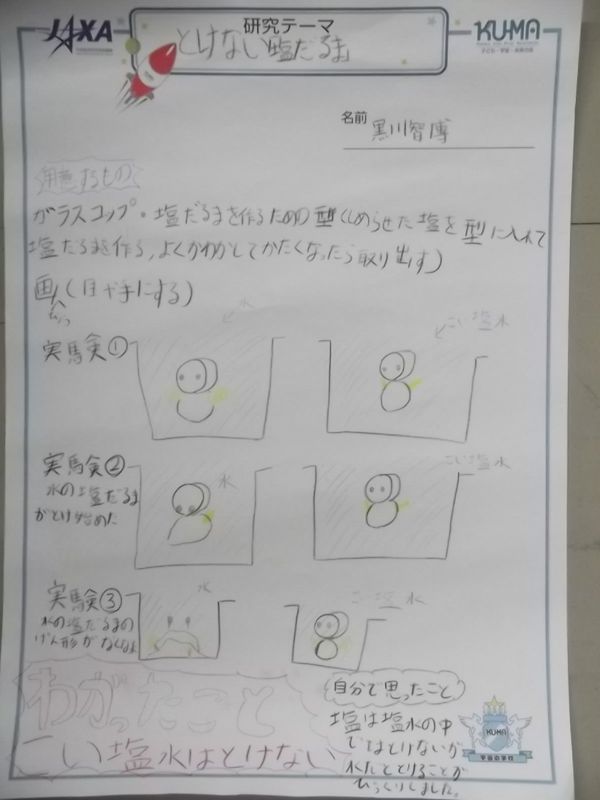 JAXA
研究テーマ
KUMA
とけない塩だるま
名前 黒川智博
用意するもの
ガラスコップ・塩だるまを作るための型(しめらせた塩を型に入れて
塩だるまを作る,よくかわかしてかたくなったら取り出す)
画(目や手にする)
水
こい塩水
実験①
実験②
水
こい塩水
水の塩だるま
がとけ始めた
実験③
水
こい塩水
水の塩だるまの
げん形がなくなる
わかったこと
こい塩水はとけない
自分で思ったこと
塩は塩水の中
ではとけないが
水だととけることが
びっくりしました。
KUMA
宇宙の学校